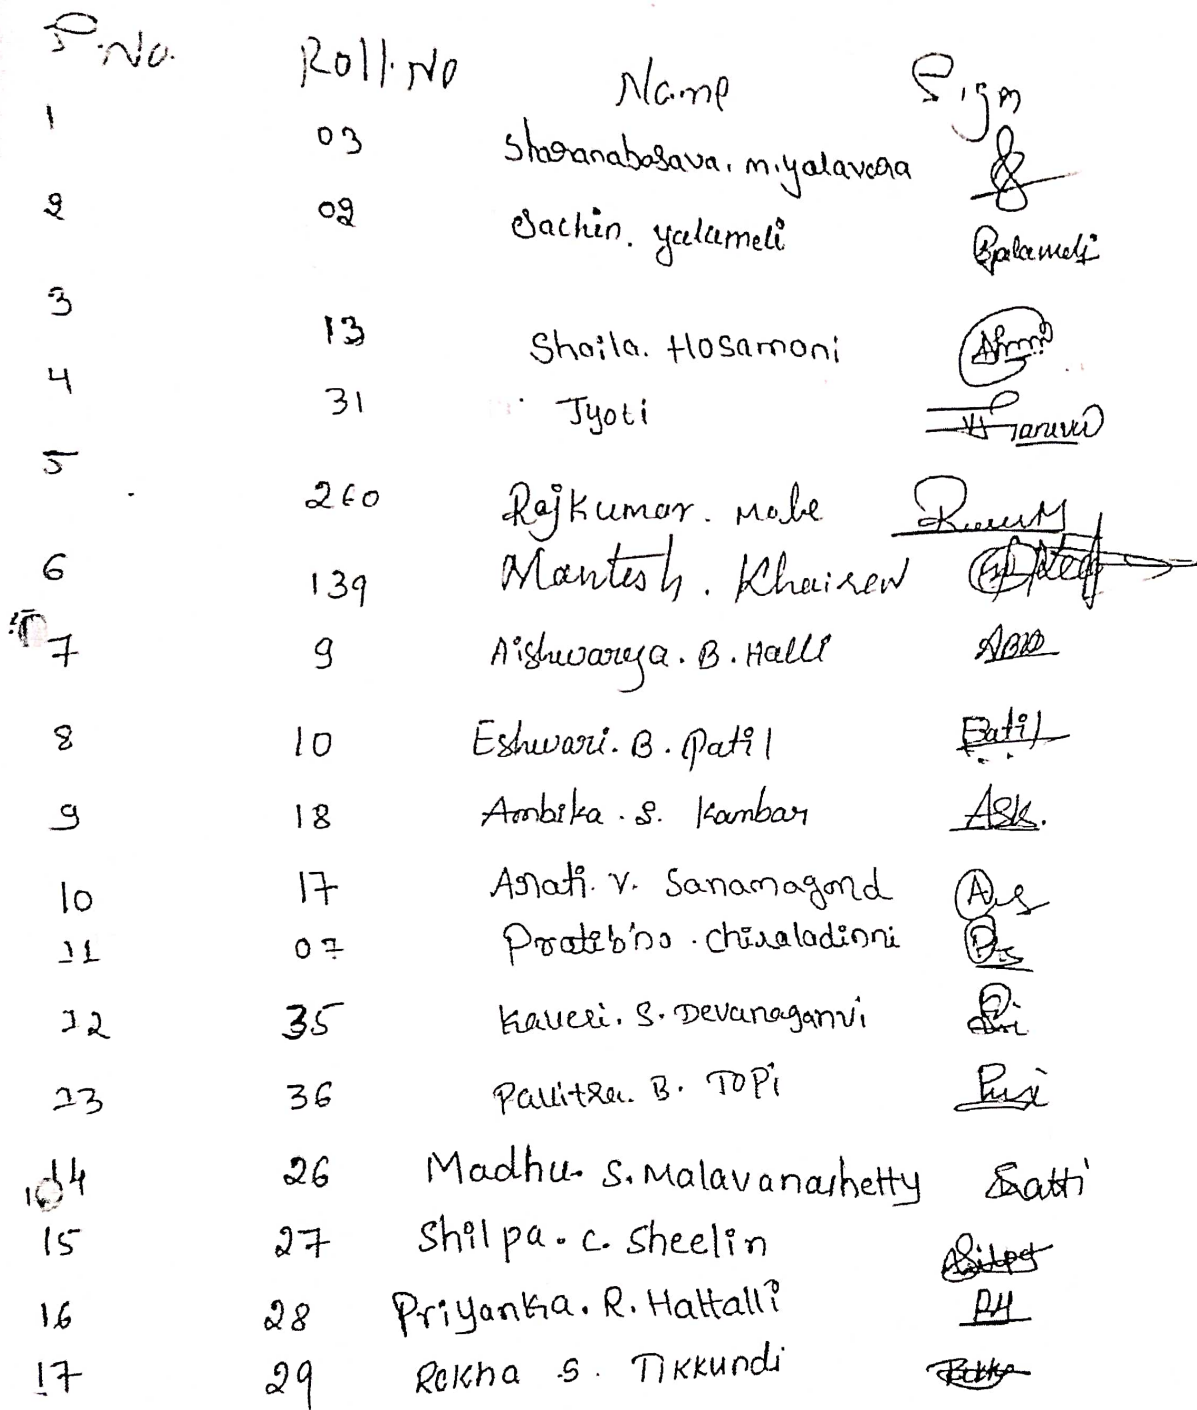 S.No. Roll.No Name Sign
1 03 Sharanabasava. m.yalavara
2 02 Sachin. yalameli Yalameli
3 13 Shaila. Hosamani
4 31 Jyoti
5 260 Rajkumar. Mabe
6 139 Mantesh. Khairew
7 9 Aishwarya. B. Halli
8 10 Eshwari. B. Patil Patil
9 18 Ambika. S. Kambar ASK.
10 17 Arati. V. Sanamagond
11 07 Chiraladinni
12 35 Kaveri. S. Devanaganvi
13 36 Pavitra. B. TOPi
14 26 Madhu. S. Malavanashetty
15 27 Shilpa. C. Sheelin
16 28 Priyanka. R. Hattalli RH
17 29 Rekha S. Tikkundi